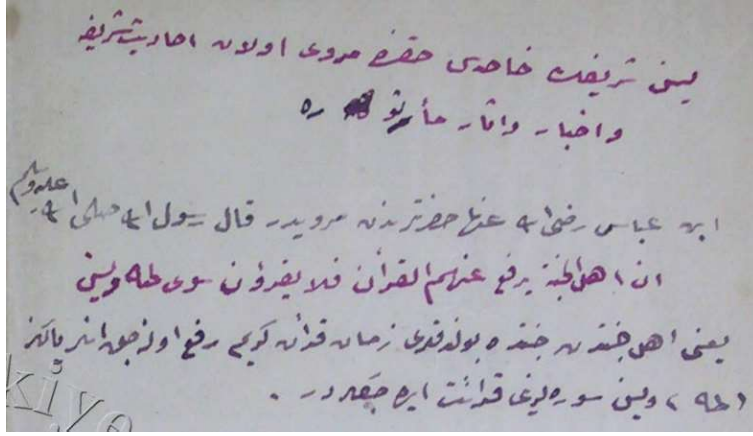 يسن شريفك خاصەسى حقنده مروى اولان احاديث شريفه
و اخبار و اثار مأثوره
ابن عباس رضى الله عنهما حضرتلرندن مرويدر قال رسول الله صلى الله عليه وسلم
ان اهل الجنة يرفع عنهم القرآن فلا يقرؤن سوى طه ويس
يعنى اهل جنتدن جنتده بولندقلرى زمان قرأن كريم رفع اولنه جق انلر يالكز
(طه) ويس سوره لرينى قرائت ايده جكلردر .
kiye